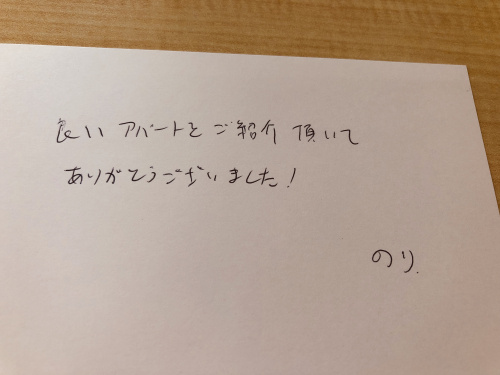 良いアパートをご紹介頂いて
ありがとうございました!
のり.